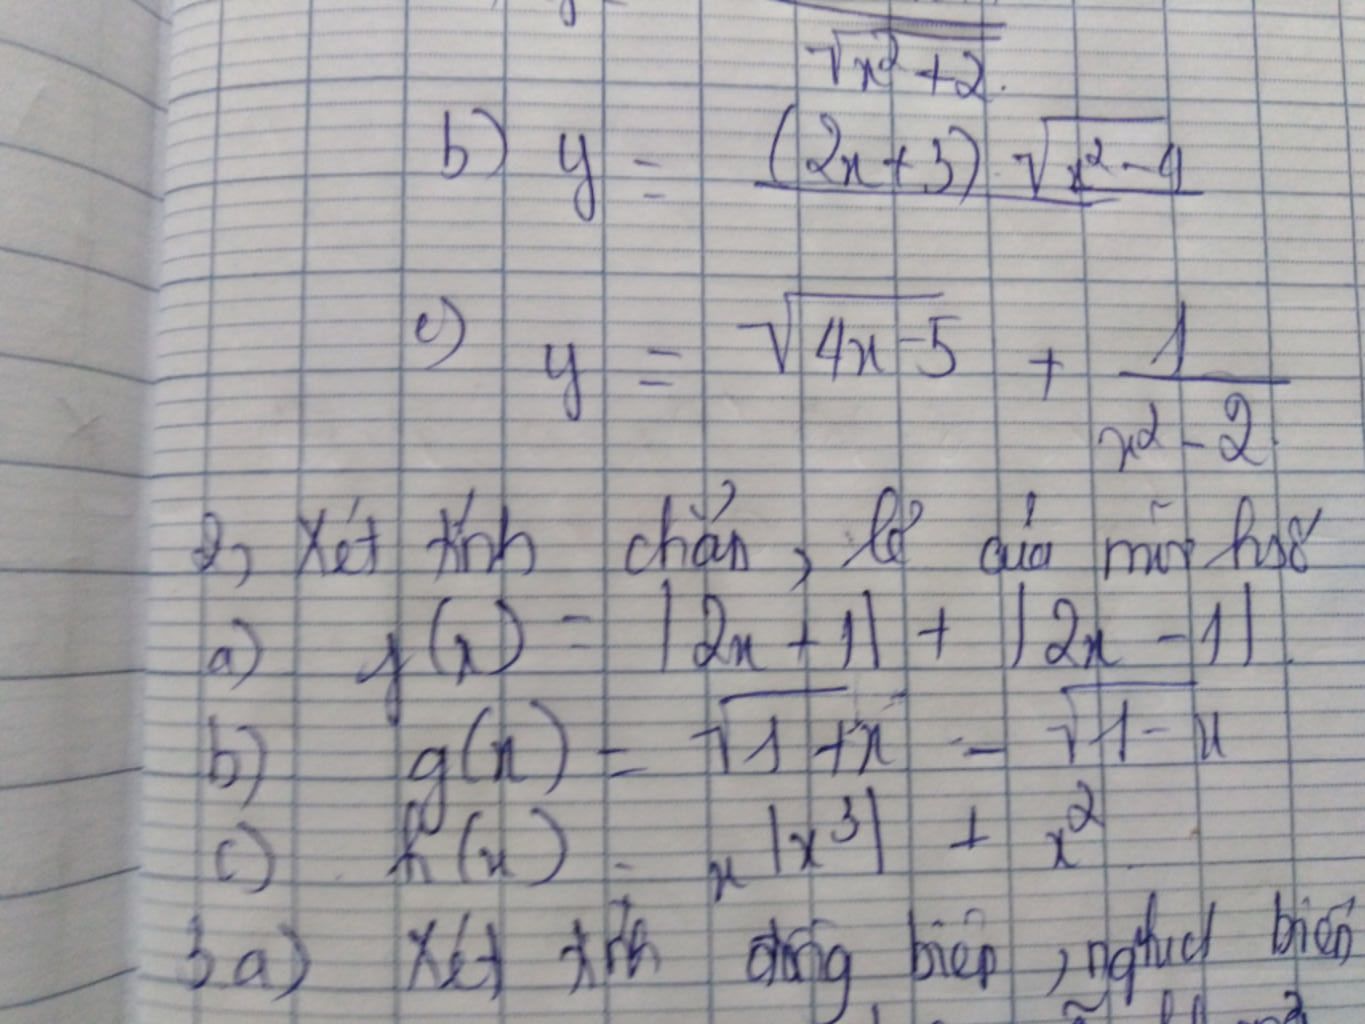 √(x² + 2)
b) y = (2x + 3) √(x² - 4)
c) y = √(4x - 5) + 1/(x² - 2)
2, Xét tính chẵn, lẻ của mỗi hsố
a) f(x) = |2x + 1| + |2x - 1|
b) g(x) = √(1 + x) - √(1 - x)
c) h(x) = x|x³| + x²
3.a) Xét tính đồng biến, nghịch biến